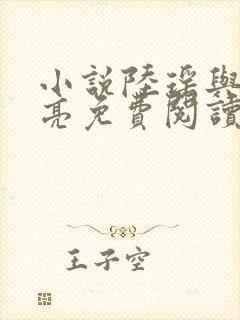 小說陸瑤與
亮免費閱讀
王子空